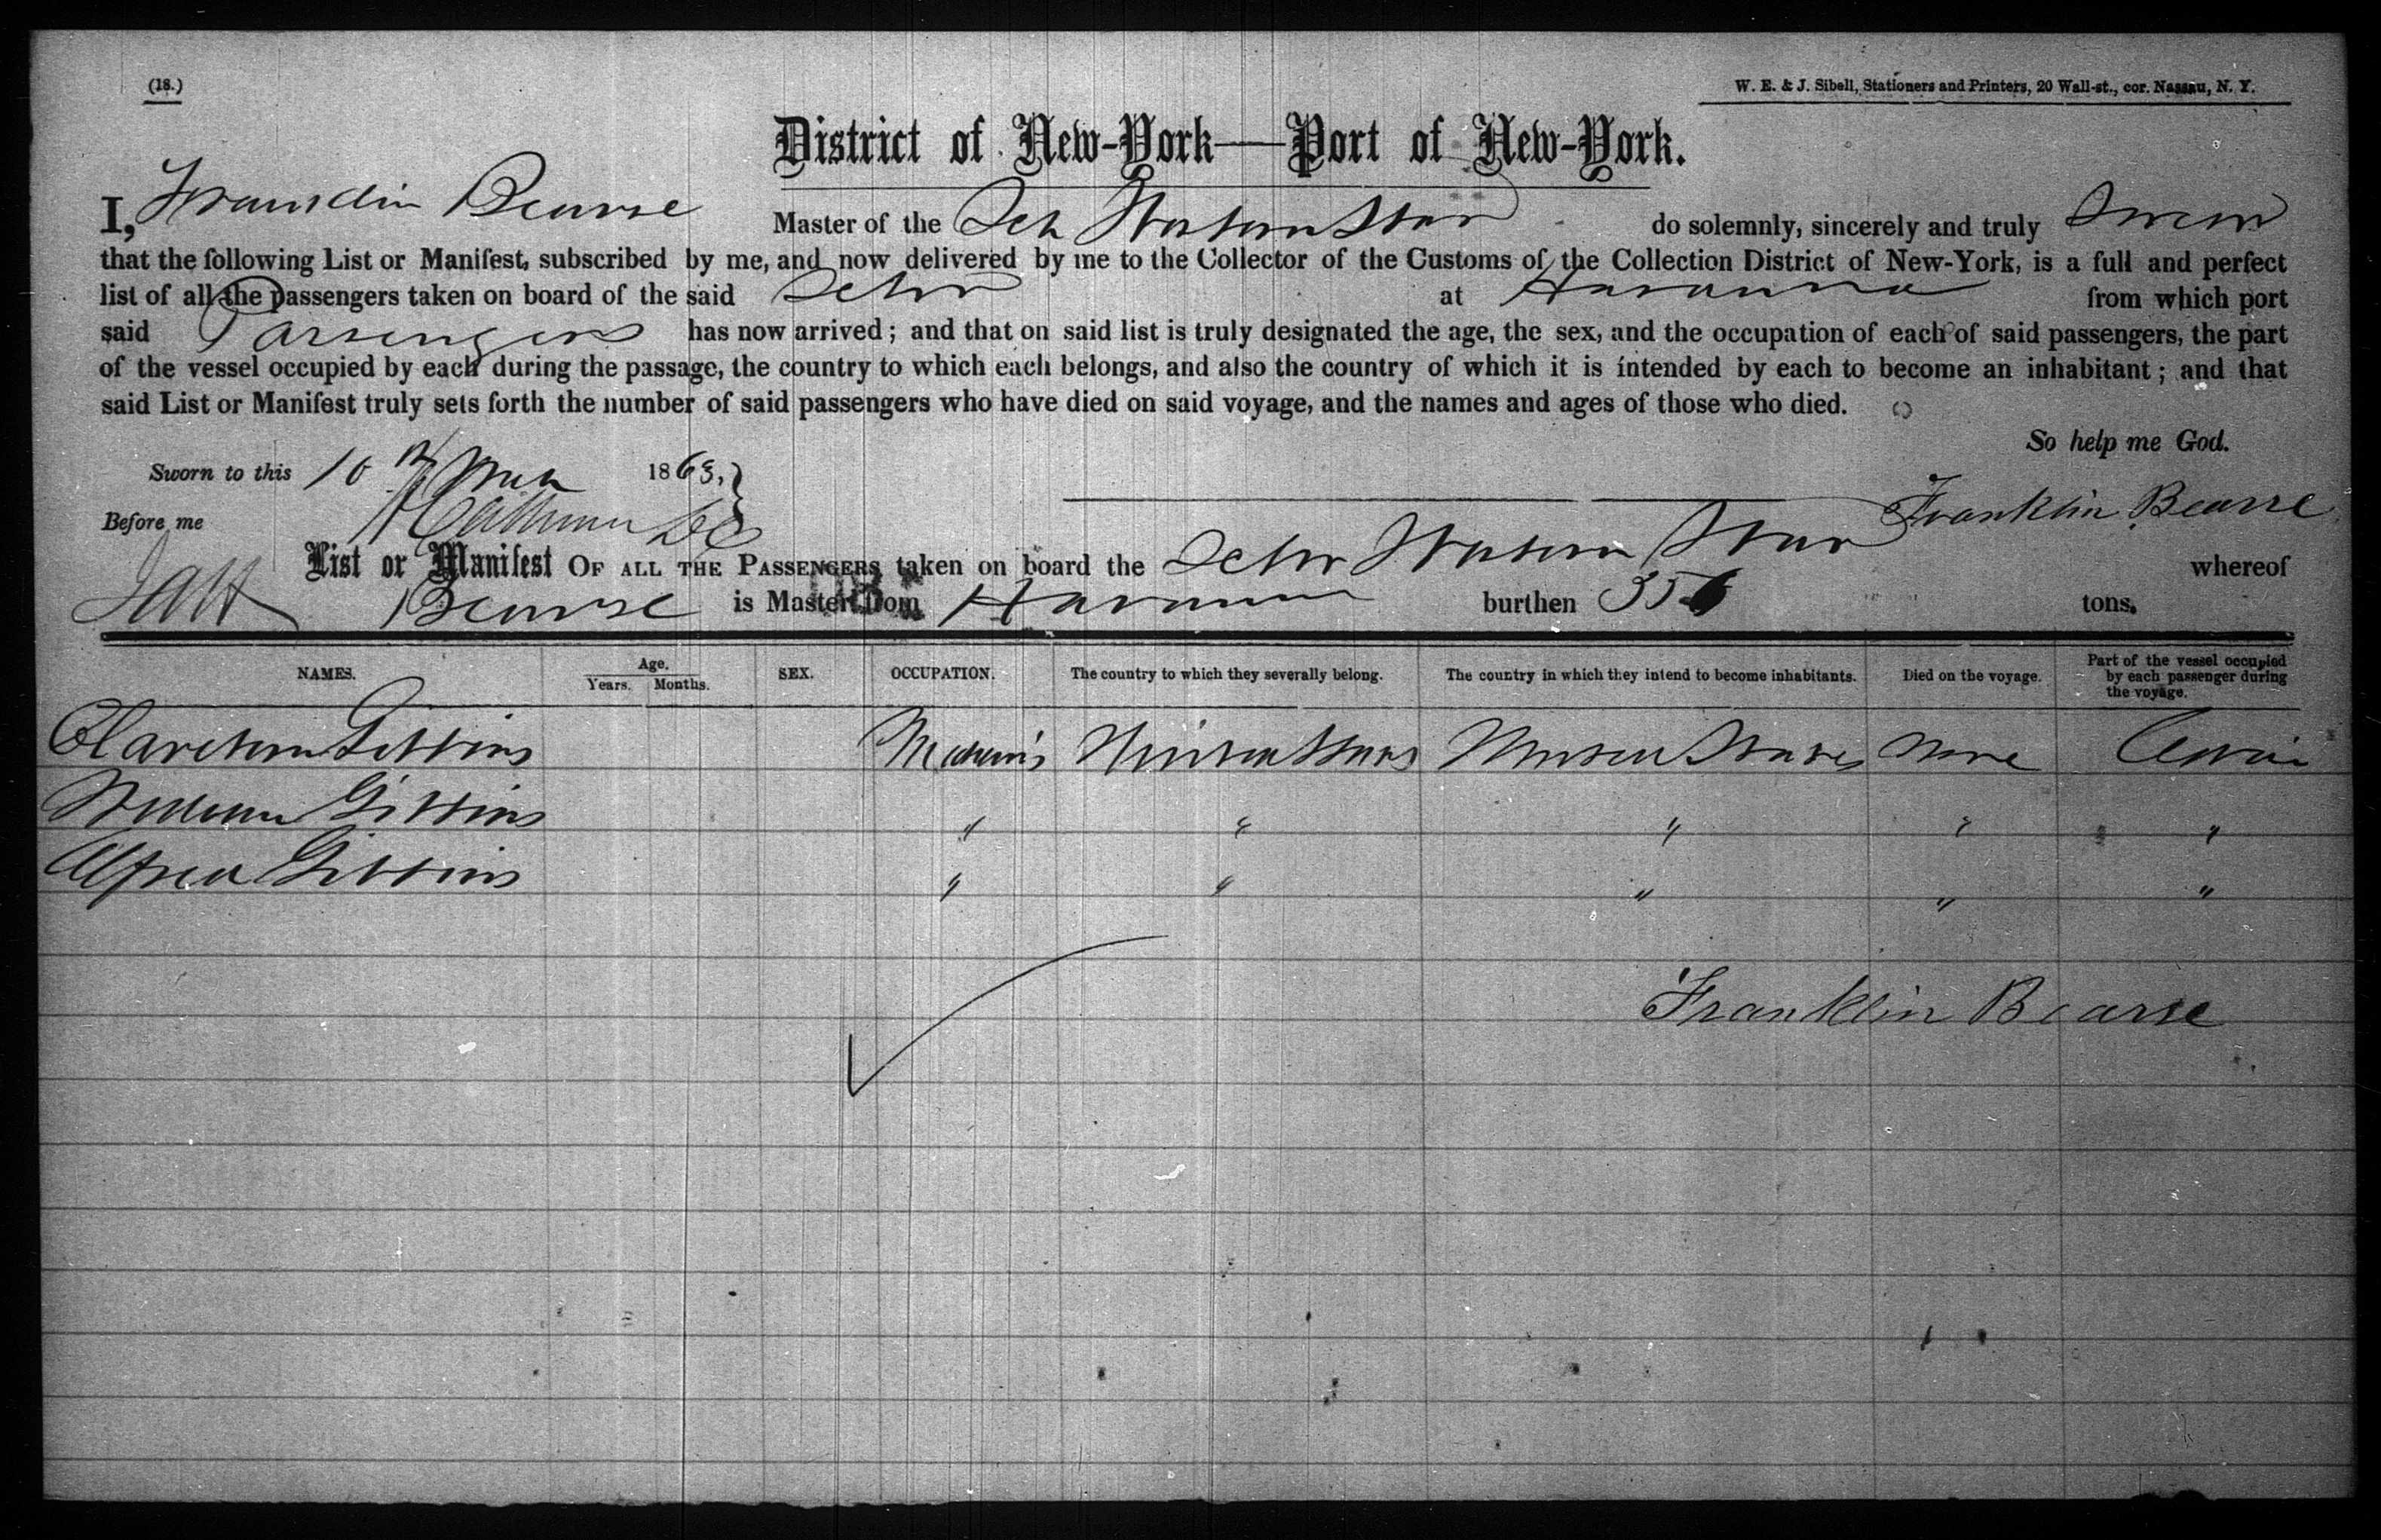 (18.)
W. E. & J. Sibell, Stationers and Printers, 20 Wall-st., cor. Nassau, N. Y.
District of New-York—Port of New-York.
I, Franklin Bearse Master of the Sch Western Star do solemnly, sincerely and truly Swear
that the following List or Manifest, subscribed by me, and now delivered by me to the Collector of the Customs of the Collection District of New-York, is a full and perfect
list of all the passengers taken on board of the said Schr at Havanna from which port
said Passengers has now arrived; and that on said list is truly designated the age, the sex, and the occupation of each of said passengers, the part
of the vessel occupied by each during the passage, the country to which each belongs, and also the country of which it is intended by each to become an inhabitant; and that
said List or Manifest truly sets forth the number of said passengers who have died on said voyage, and the names and ages of those who died.
So help me God.
Sworn to this 10th Mch 1863,
Before me Franklin Bearse
List or Manifest OF ALL THE PASSENGERS taken on board the Schr Western Star whereof
Bearse is Master, from Havanna burthen 356 tons.
NAMES. Age. Years. Months. SEX. OCCUPATION. The country to which they severally belong. The country in which they intend to become inhabitants. Died on the voyage. Part of the vessel occupied by each passenger during the voyage.
Gibbins United States United States None Cabin
William Gibbins " " " " "
Alfred Gibbins " " " " "
Franklin Bearse